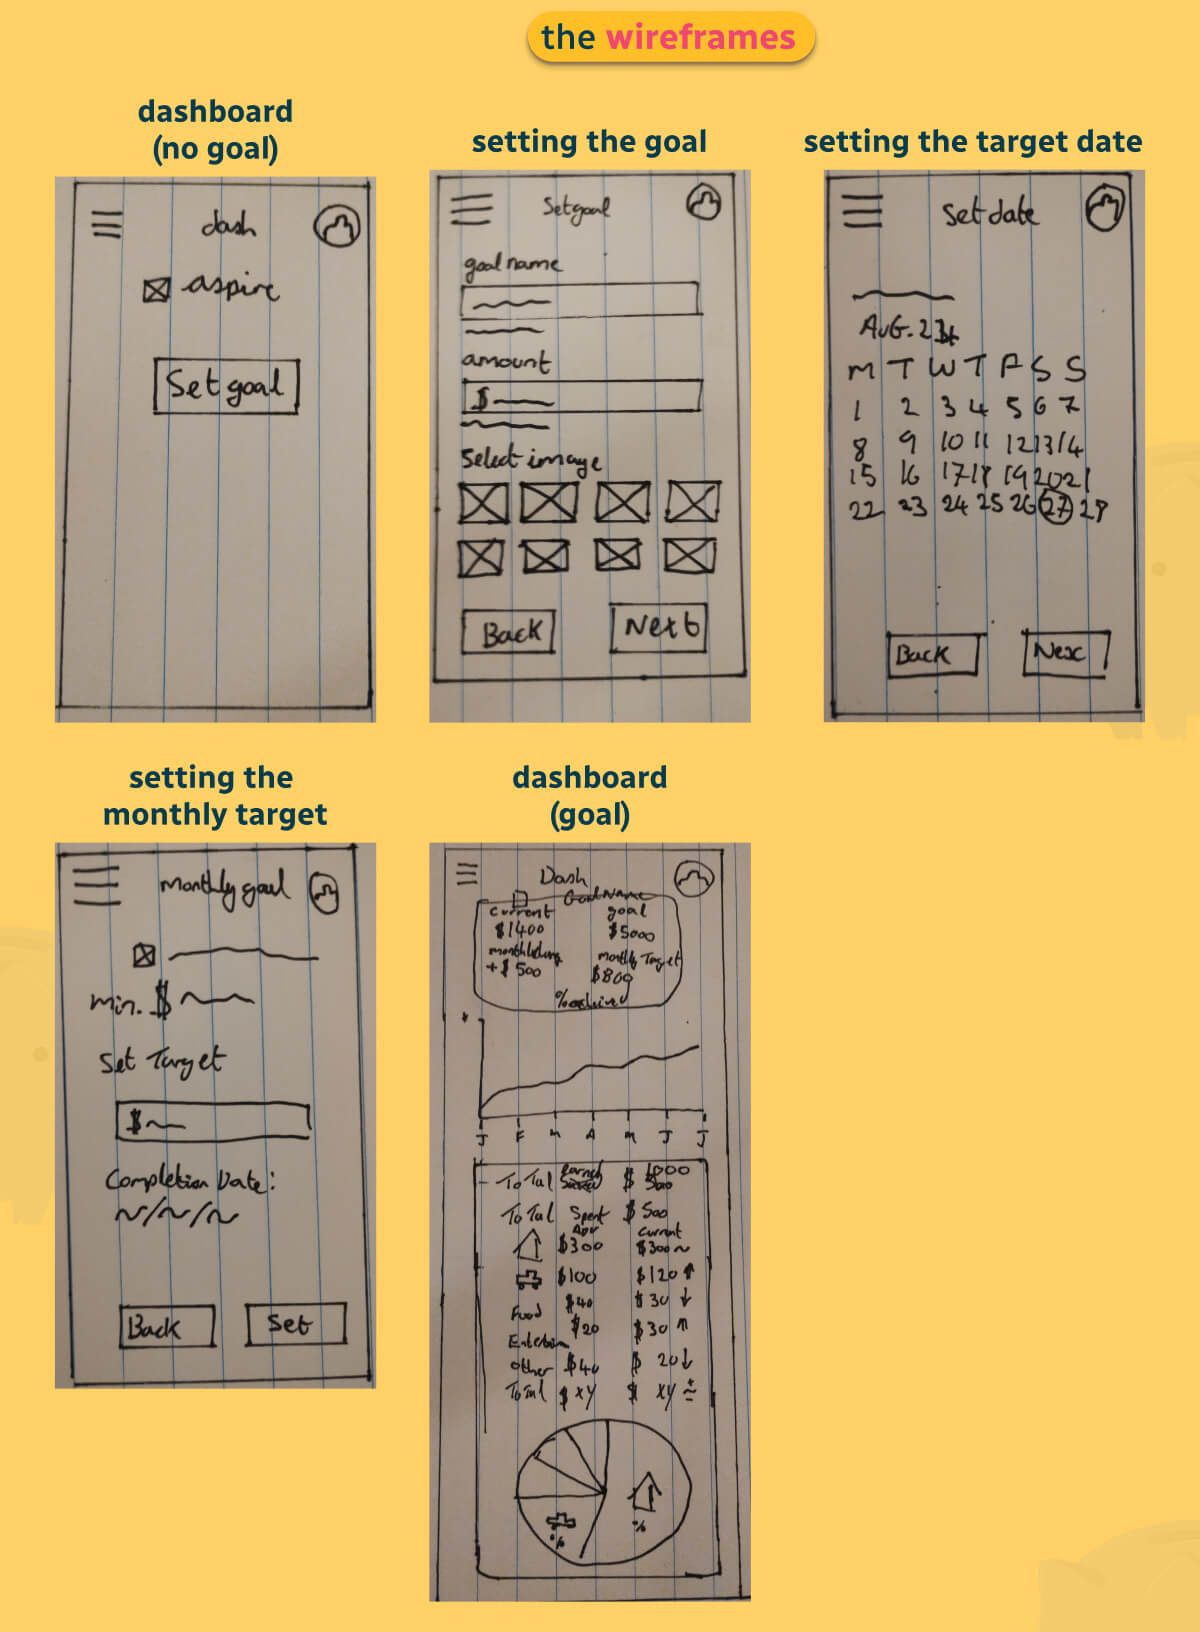 the wireframes
dashboard
(no goal)
dash
aspire
Set goal
setting the goal
Set goal
goal name
amount
$
Select image
Back
Next
setting the target date
Set date
AUG.
M T W T F S S
1 2 3 4 5 6 7
8 9 10 11 12 13 14
15 16 17 18 19 20 21
22 23 24 25 26 27 28
Back
Next
setting the
monthly target
Monthly goal
min. $
Set Target
$
Completion Date:
Back
Set
dashboard
(goal)
Dash
Goal Name
Current goal
$1400 $5000
monthly Target
+ $500 $800
%
J F M A M J J
Total earned $ 1000
Total Spent $ 500
Current
$300 $300 ~
$100 $120 ↑
Food $40 $30 ↓
$20 $30 ↑
Other $40 $ 20 ↓
Total $ XY $ XY
%
%